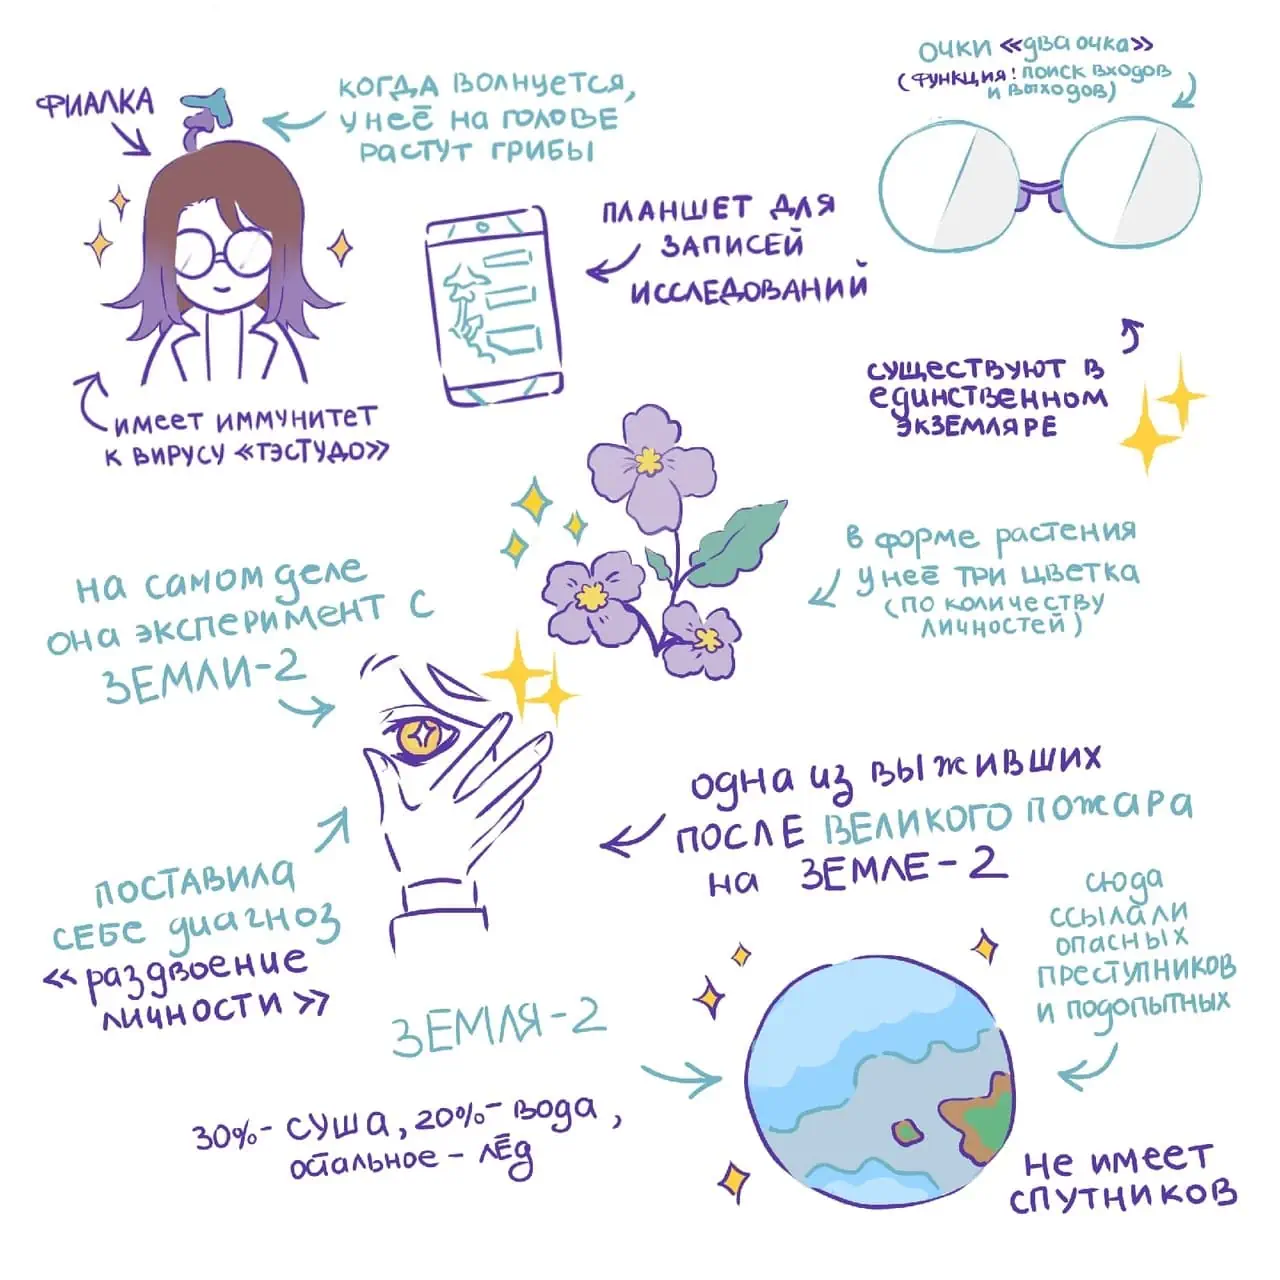 ФИАЛКА
КОГДА ВОЛНУЕТСЯ,
У НЕЁ НА ГОЛОВЕ
РАСТУТ ГРИБЫ
ОЧКИ «ДВА ОЧКА»
(ФУНКЦИЯ: ПОИСК ВХОДОВ
И ВЫХОДОВ)
ПЛАНШЕТ ДЛЯ
ЗАПИСЕЙ
ИССЛЕДОВАНИЙ
СУЩЕСТВУЮТ В
ЕДИНСТВЕННОМ
ЭКЗЕМЛЯРЕ
ИМЕЕТ ИММУНИТЕТ
К ВИРУСУ «ТЭСТУДО»
В ФОРМЕ РАСТЕНИЯ
У НЕЁ ТРИ ЦВЕТКА
(ПО КОЛИЧЕСТВУ
ЛИЧНОСТЕЙ)
НА САМОМ ДЕЛЕ
ОНА ЭКСПЕРИМЕНТ С
ЗЕМЛИ-2
ОДНА ИЗ ВЫЖИВШИХ
ПОСЛЕ ВЕЛИКОГО ПОЖАРА
НА ЗЕМЛЕ-2
ПОСТАВИЛА
СЕБЕ ДИАГНОЗ
«РАЗДВОЕНИЕ
ЛИЧНОСТИ»
СЮДА
ССЫЛАЛИ
ОПАСНЫХ
ПРЕСТУПНИКОВ
И ПОДОПЫТНЫХ
ЗЕМЛЯ-2
30%- СУША, 20%- ВОДА,
ОСТАЛЬНОЕ - ЛЁД
НЕ ИМЕЕТ
СПУТНИКОВ